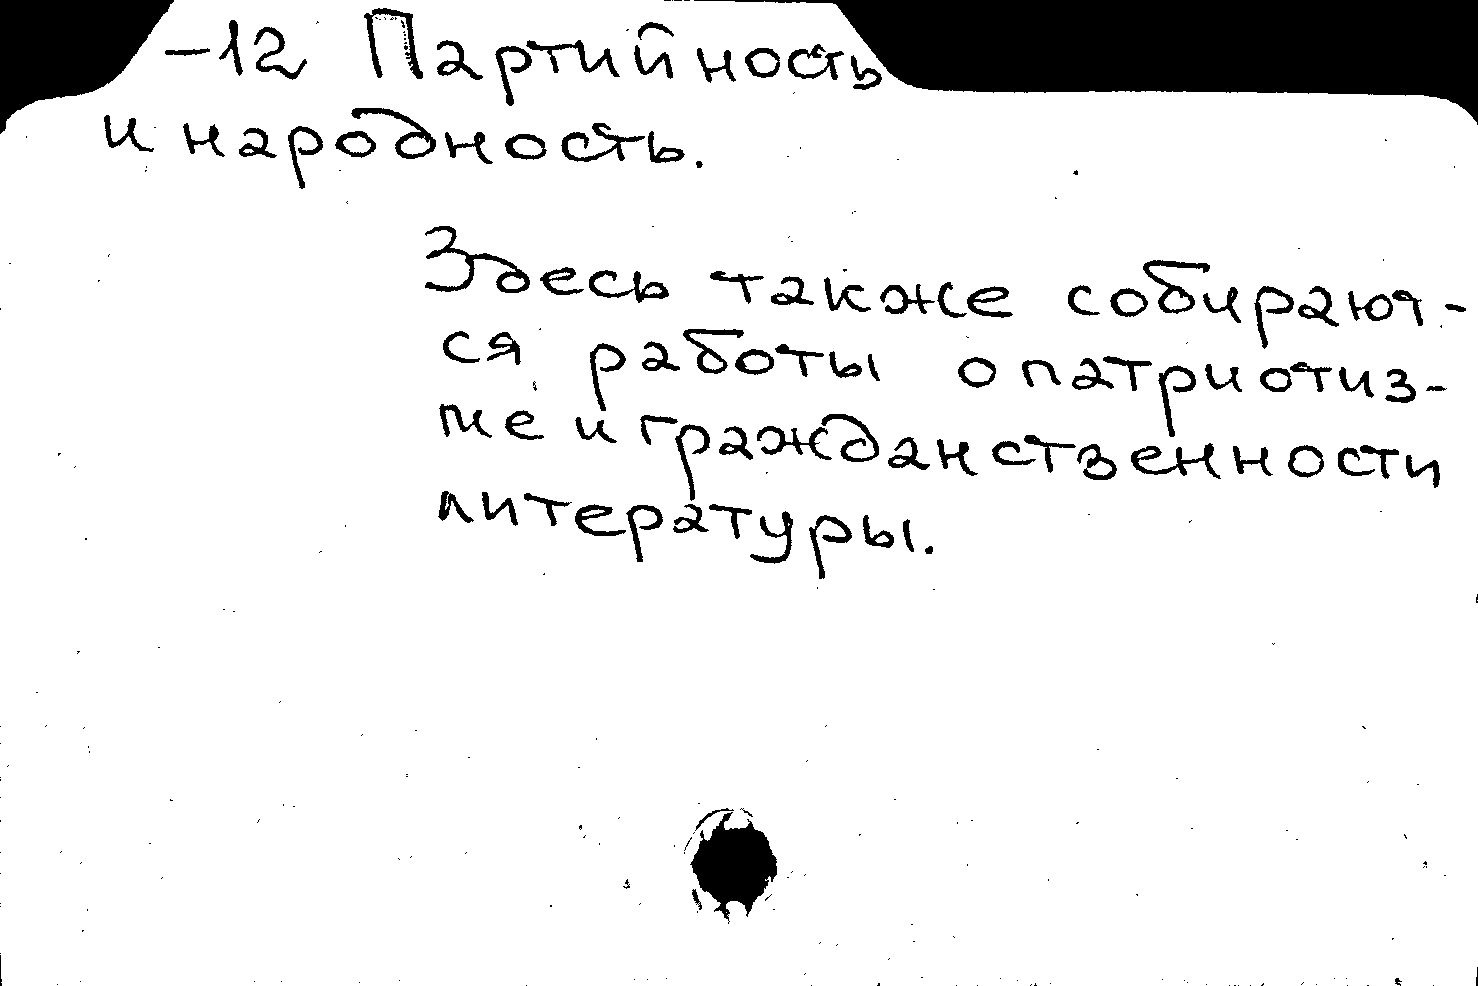 -12 Партийность
и народность.
Здесь также собирают-
ся работы о патриотиз-
ме и гражданственности
литературы.